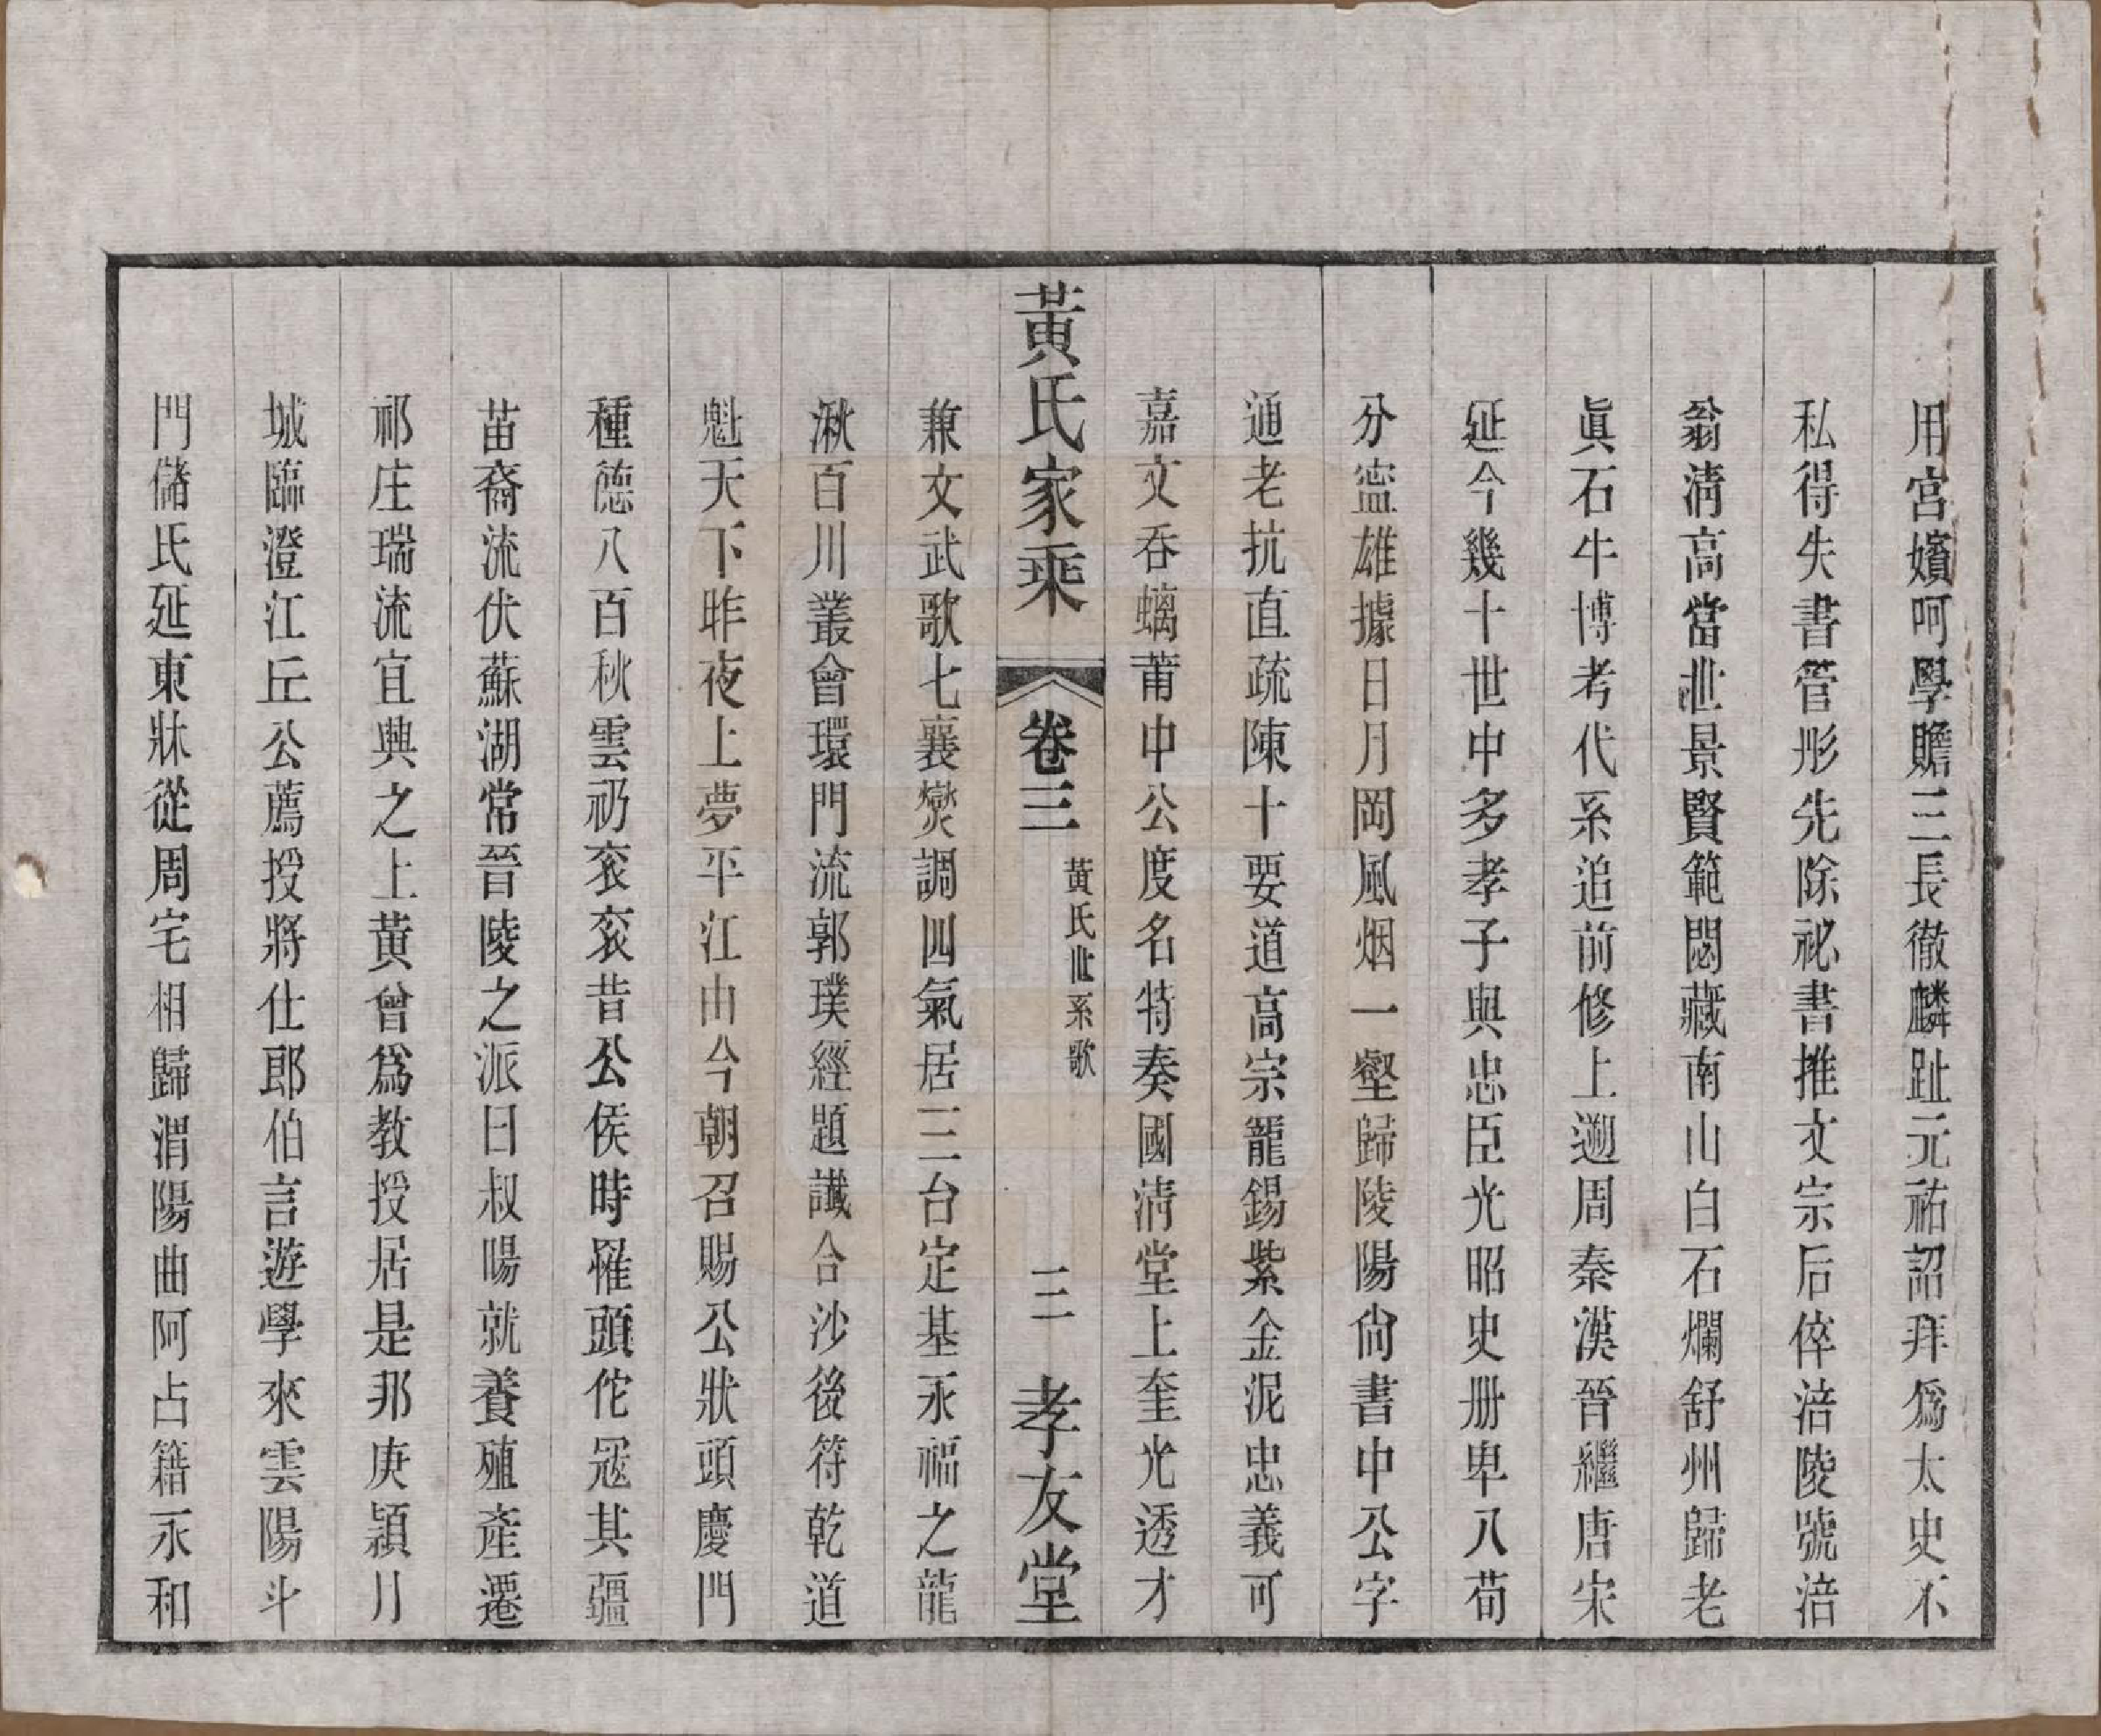 用宮嬪呵學贍三長徹麟趾元祐詔拜爲太史不
私得失書管彤先除祕書推文宗后倅涪陵號涪
翁淸高當世景賢範閟藏南山白石爛舒州歸老
眞石牛博考代系追前修上遡周秦漢晉繼唐宋
延今幾十世中多孝子與忠臣光昭史册卑八荀
分寍雄據日月岡風烟一壑歸陵陽尙書中公字
通老抗直疏陳十要道高宗寵錫紫金泥忠義可
嘉文呑螭莆中公度名特奏國淸堂上奎光透才
黃氏家乘 卷三 黃氏世系歌 三 孝友堂
兼文武歌七襄爕調四氣居三台定基永福之龍
湫百川叢會環門流郭璞經題讖合沙後符乾道
魁天下昨夜上夢平江由今朝召賜公狀頭慶門
種德八百秋雲礽衮衮昔公侯時罹頭佗冦其疆
苗裔流伏蘇湖常晉陵之派曰叔暘就養殖產遷
祁庄瑞流宜興之上黃曾爲教授居是邪庚頴川
城臨澄江丘公薦授將仕郎伯言遊學來雲陽斗
門儲氏延東牀從周宅相歸渭陽曲阿占籍永和